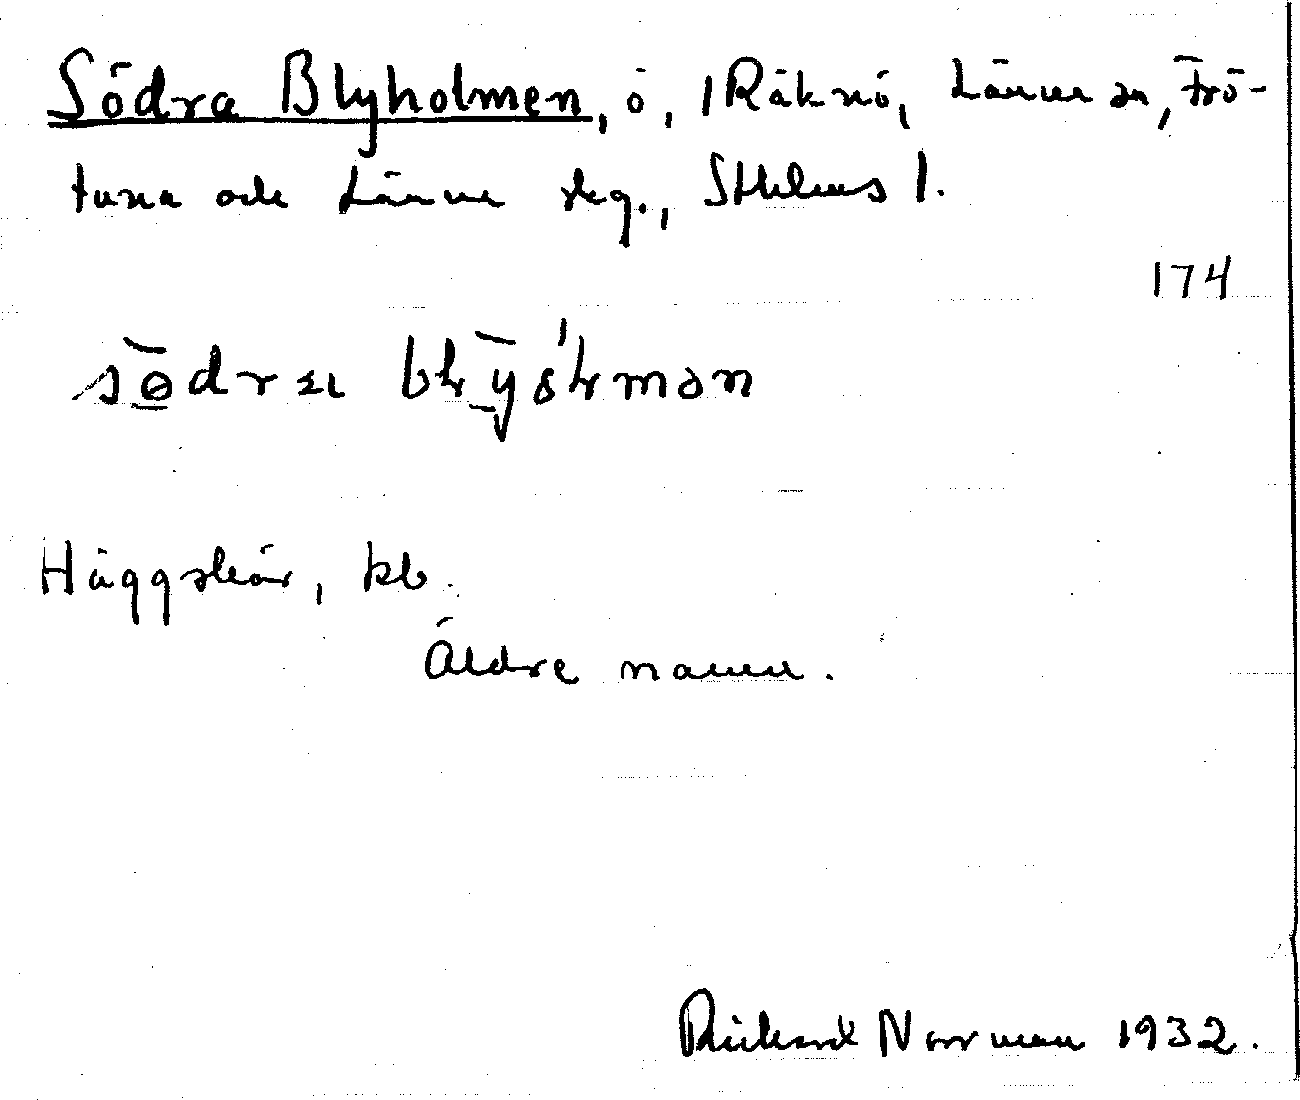 Södra Blyholmen, ö, Räknö, Länna sn, Frö-
tuna och Länna skg., Sthlms l.
174
södra blȳóɫmɑn
Häggskär, kb.
Äldre namn.
Rickard Norrman 1932.